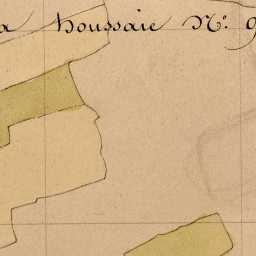 a houssaie N.o 9